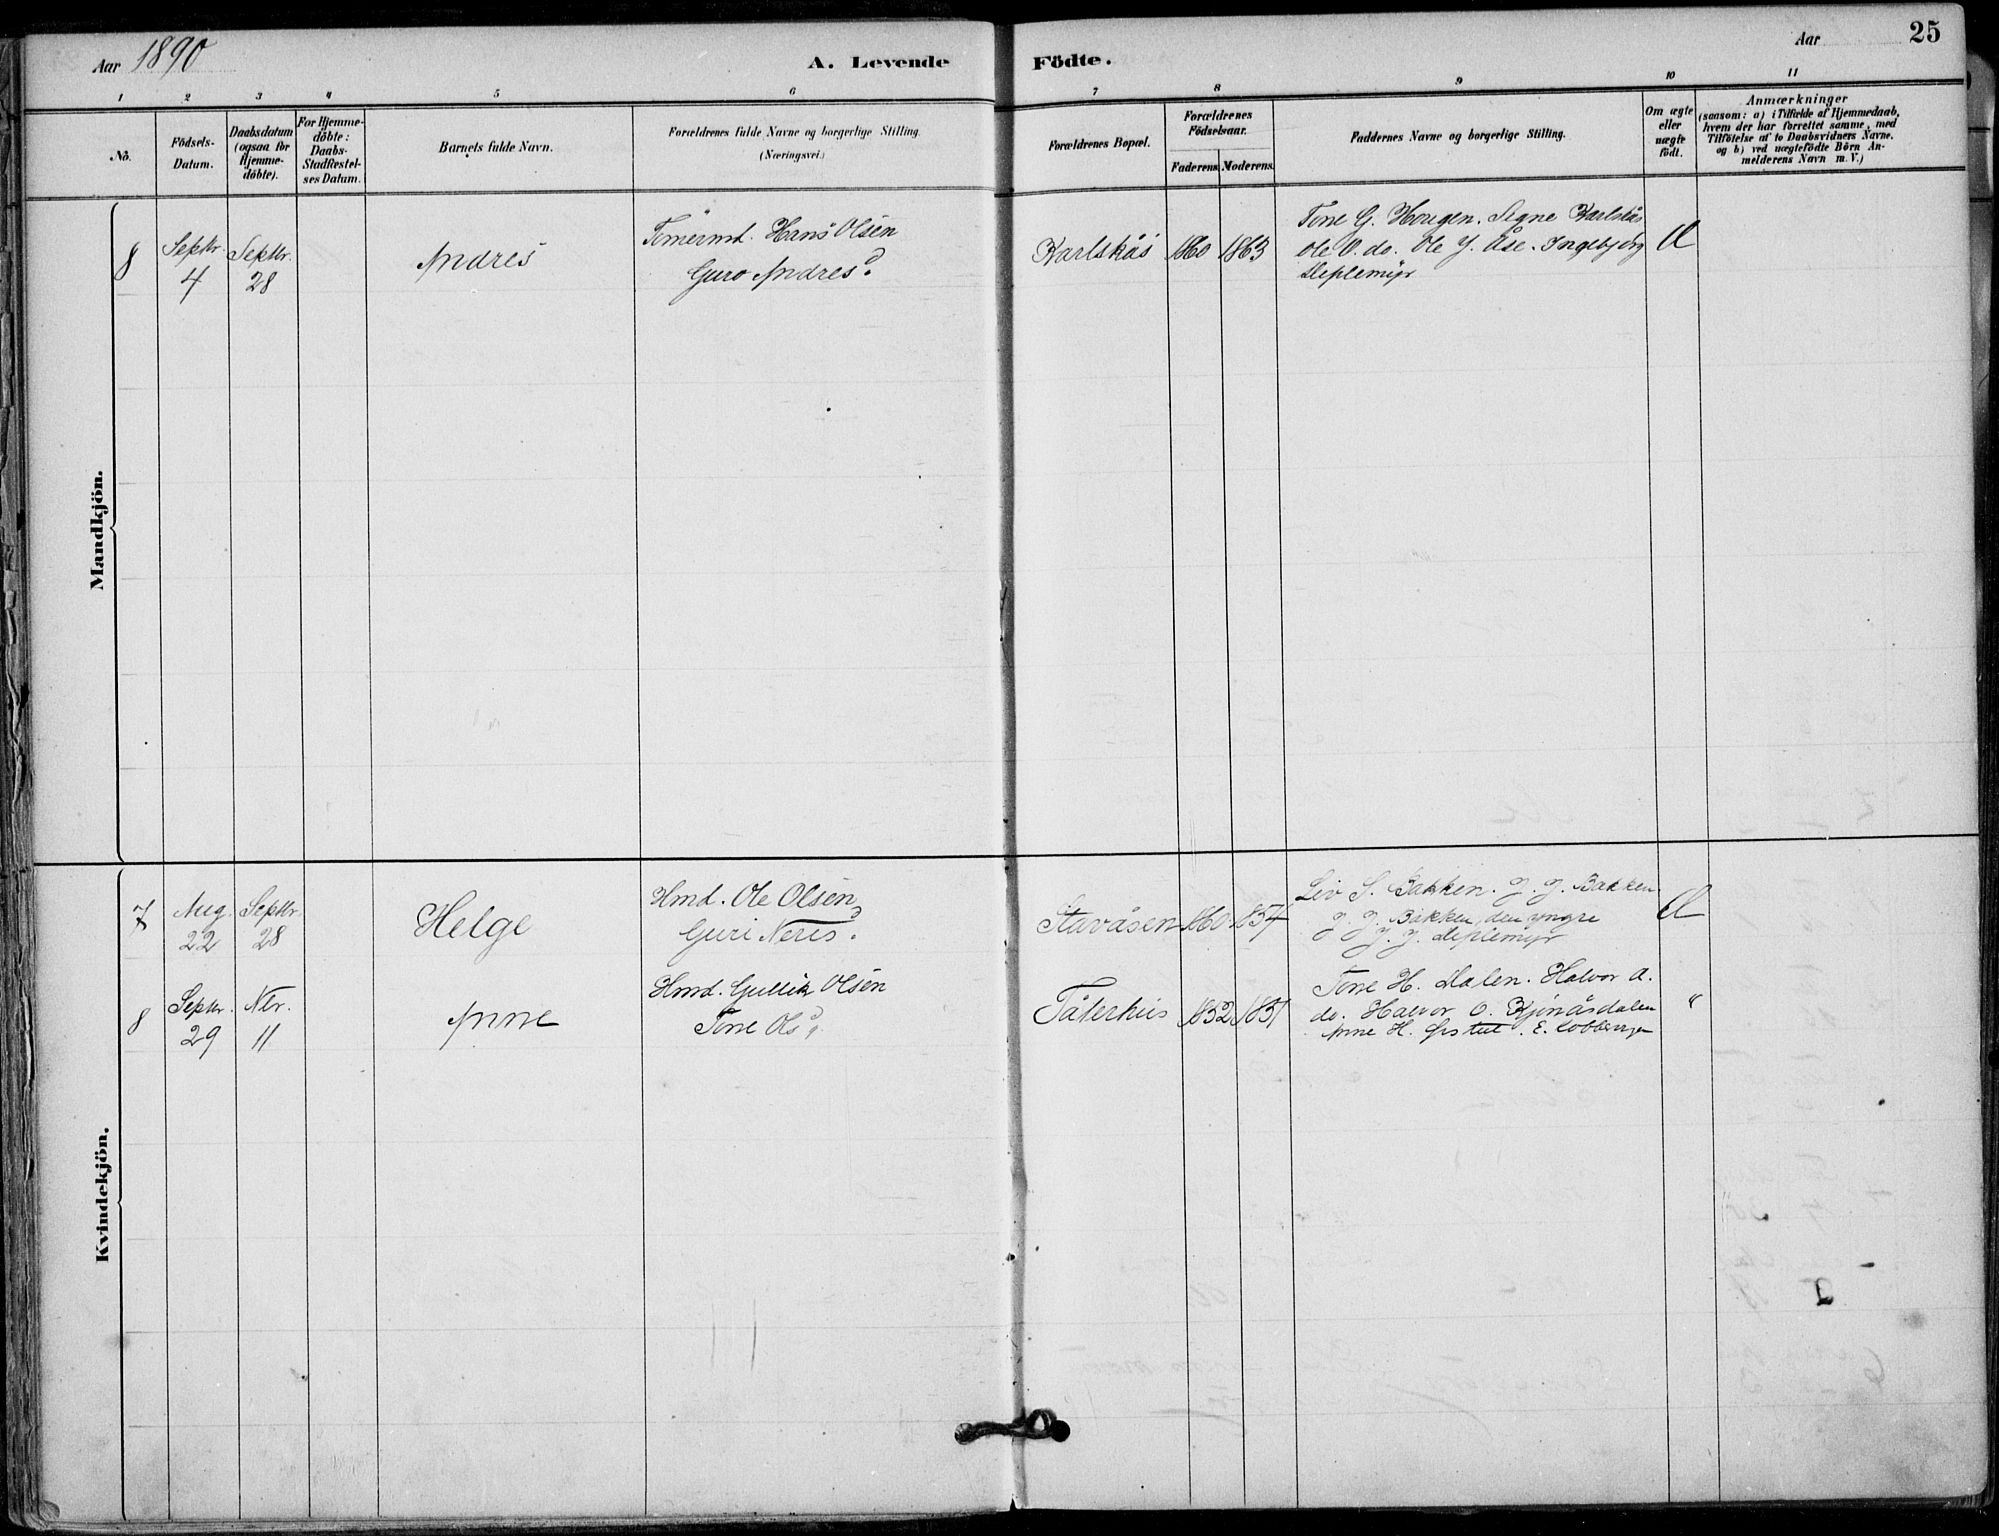 Aar 1890
A. Levende Födte.
Aar
25
1 2 3 4 5 6 7 8 9 10 11
No.
Födsels-
Datum.
Daabsdatum
(ogsaa for
Hjemme-
döbte).
For Hjemme-
döbte:
Daabs-
Stadfæstel-
ses Datum.
Barnets fulde Navn.
Forældrenes fulde Navne og borgerlige Stilling.
(Næringsvei.)
Forældrenes Bopæl.
Forældrenes
Födselsaar.
Faderens. Moderens.
Faddernes Navne og borgerlige Stilling.
Om ægte
eller
uægte
födt.
Anmærkninger
(saasom: a) i Tilfælde af Hjemmedaab,
hvem der har forrettet samme, med
Tilföielse af to Daabsvidners Navne,
og b) ved uægtefödte Börn An-
melderens Navn m. V.)
Mandkjön.
8
Septbr.
4
Septbr.
28
Andres
Tömermd. Hans Olsen
Guro Andresd.
Karlskås
1860 1863
Tone G. Hougen. Signe Karlskås
Ole O. do. Ole J. Åse. Ingebjørg
Deplemyr
Æ
Kvindekjön.
7
Aug.
22
Septbr.
28
Helge
Hmd. Ole Olsen
Guri Nerisd.
Stavåsen
1860 1854
Liv S. Bakken. J. J. Bakken
J. J. Bakken, den yngre
J. J. Deplemyr
Æ
8
Septbr.
29
Nbr.
11
Anne
Hmd. Gullik Olsen
Tone Olsd.
Tåterhus
1852 1851
Tone H. Dalen. Halvor A.
do. Halvor O. Kjinåsdalen
Anne H. E.
"